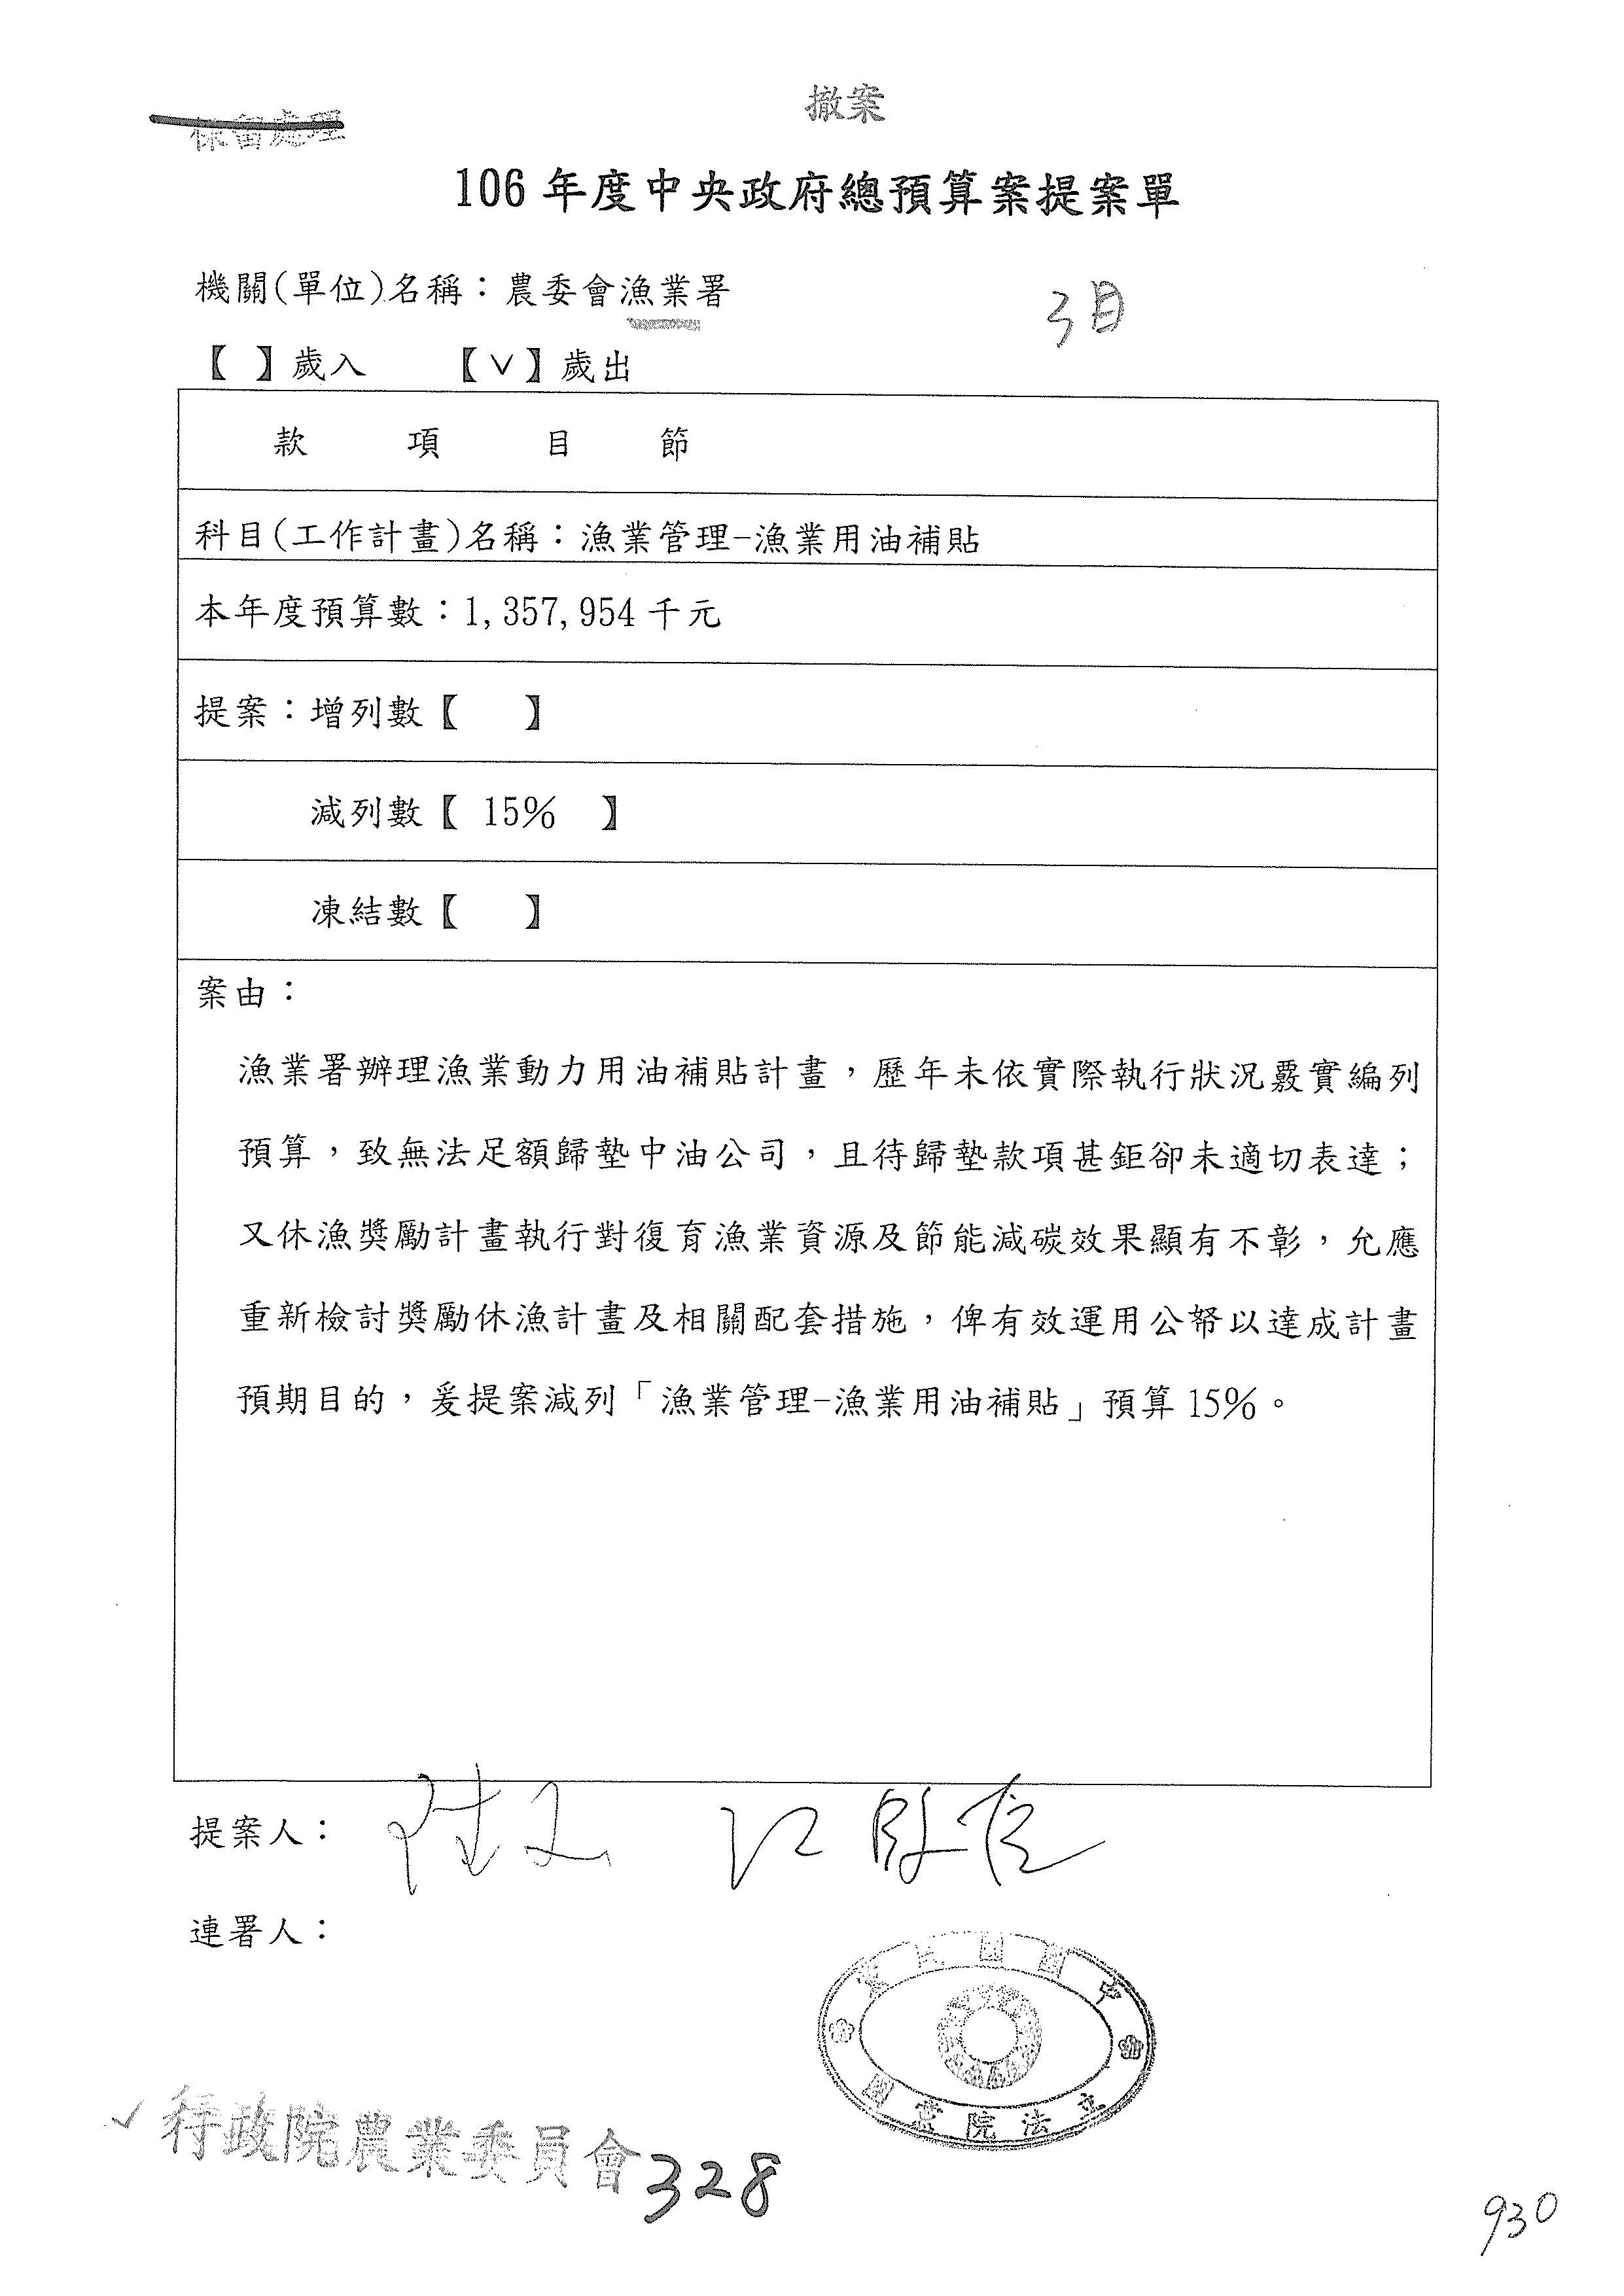 撤案
保留處理
106年度中央政府總預算案提案單
機關(單位)名稱：農委會漁業署
3目
【 】歲入 【∨】歲出
款 項 目 節
科目(工作計畫)名稱：漁業管理-漁業用油補貼
本年度預算數：1,357,954千元
提案：增列數【 】
減列數【 15% 】
凍結數【 】
案由：
漁業署辦理漁業動力用油補貼計畫，歷年未依實際執行狀況覈實編列
預算，致無法足額歸墊中油公司，且待歸墊款項甚鉅卻未適切表達；
又休漁獎勵計畫執行對復育漁業資源及節能減碳效果顯有不彰，允應
重新檢討獎勵休漁計畫及相關配套措施，俾有效運用公帑以達成計畫
預期目的，爰提案減列「漁業管理-漁業用油補貼」預算15%。
提案人：
連署人：
立法院黨團
✓行政院農業委員會328
930